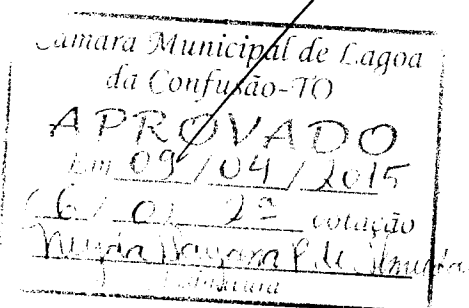 Câmara Municipal de Lagoa
da Confusão-TO
APROVADO
Em 09/04/2015
(6/0) 2ª votação
Assinatura